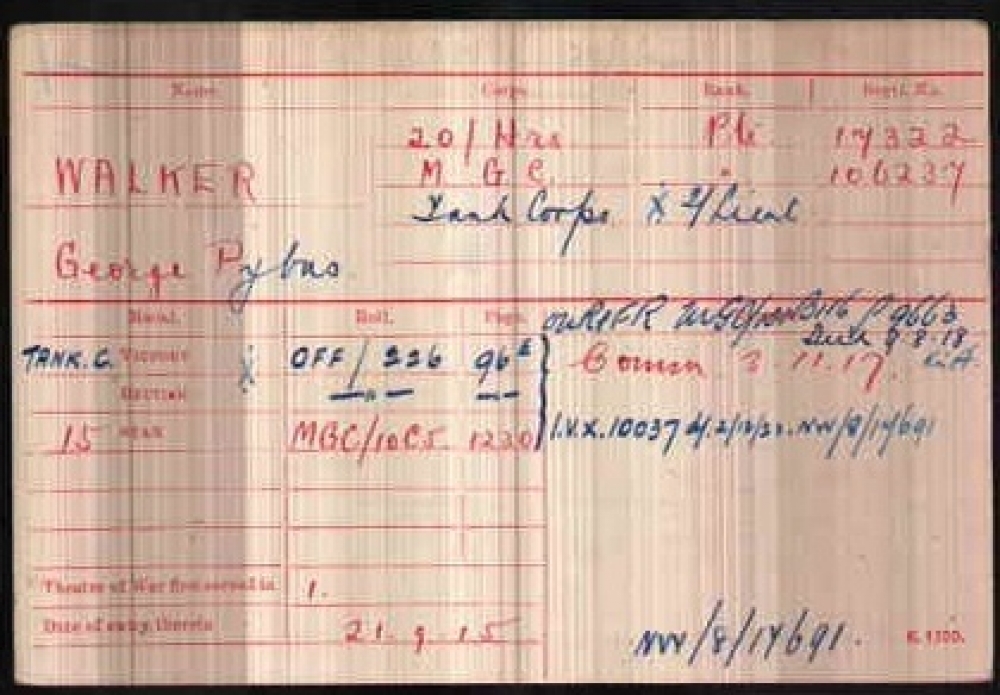 Name. Corps. Rank. Regtl. No.
20/Hrs Pte. 17322
WALKER M G C. " 106237
Tank Corps X 2/Lieut
George Pybus
Medal. Roll. Page.
TANK. C. VICTORY X OFF/226 96
BRITISH —"— —"—
Comm 3.11.17.
15 STAR MGC/10C5 1230 I.V.X.10037 NW/8/14691
Theatre of War first served in 1.
Date of entry therein 21.9.15
NW/8/14691.
K. 1380.